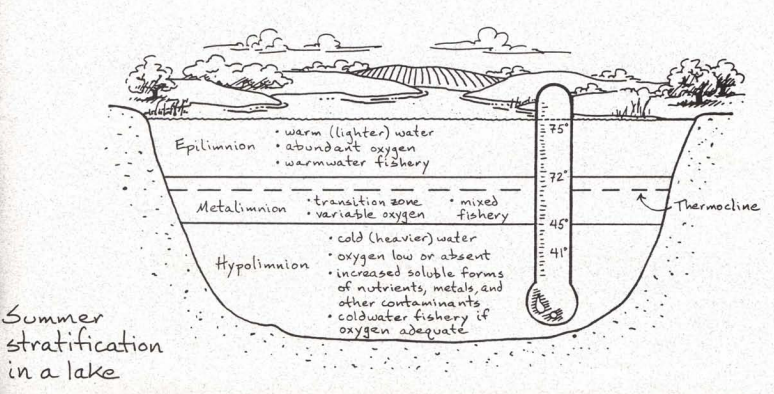 75°
Epilimnion
• warm (lighter) water
• abundant oxygen
• warmwater fishery
72°
Metalimnion
• transition zone
• variable oxygen
• mixed
fishery
Thermocline
45°
Hypolimnion
• cold (heavier) water
• oxygen low or absent
• increased soluble forms
of nutrients, metals, and
other contaminants
• coldwater fishery if
oxygen adequate
41°
Summer
stratification
in a lake